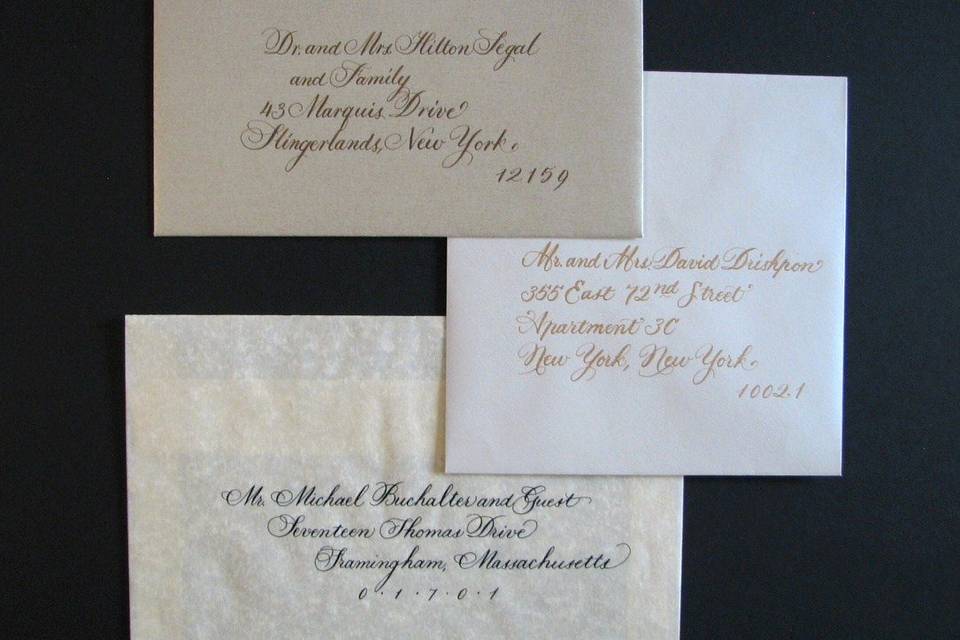 Dr. and Mrs. Hilton Segal
and Family
43 Marquis Drive
Slingerlands, New York.
12159
Mr. and Mrs. David Drishpon
355 East 72nd Street
Apartment 3C
New York, New York.
10021
Mr. Michael Buchalter and Guest
Seventeen Thomas Drive
Framingham, Massachusetts
0 · 1 · 7 · 0 · 1